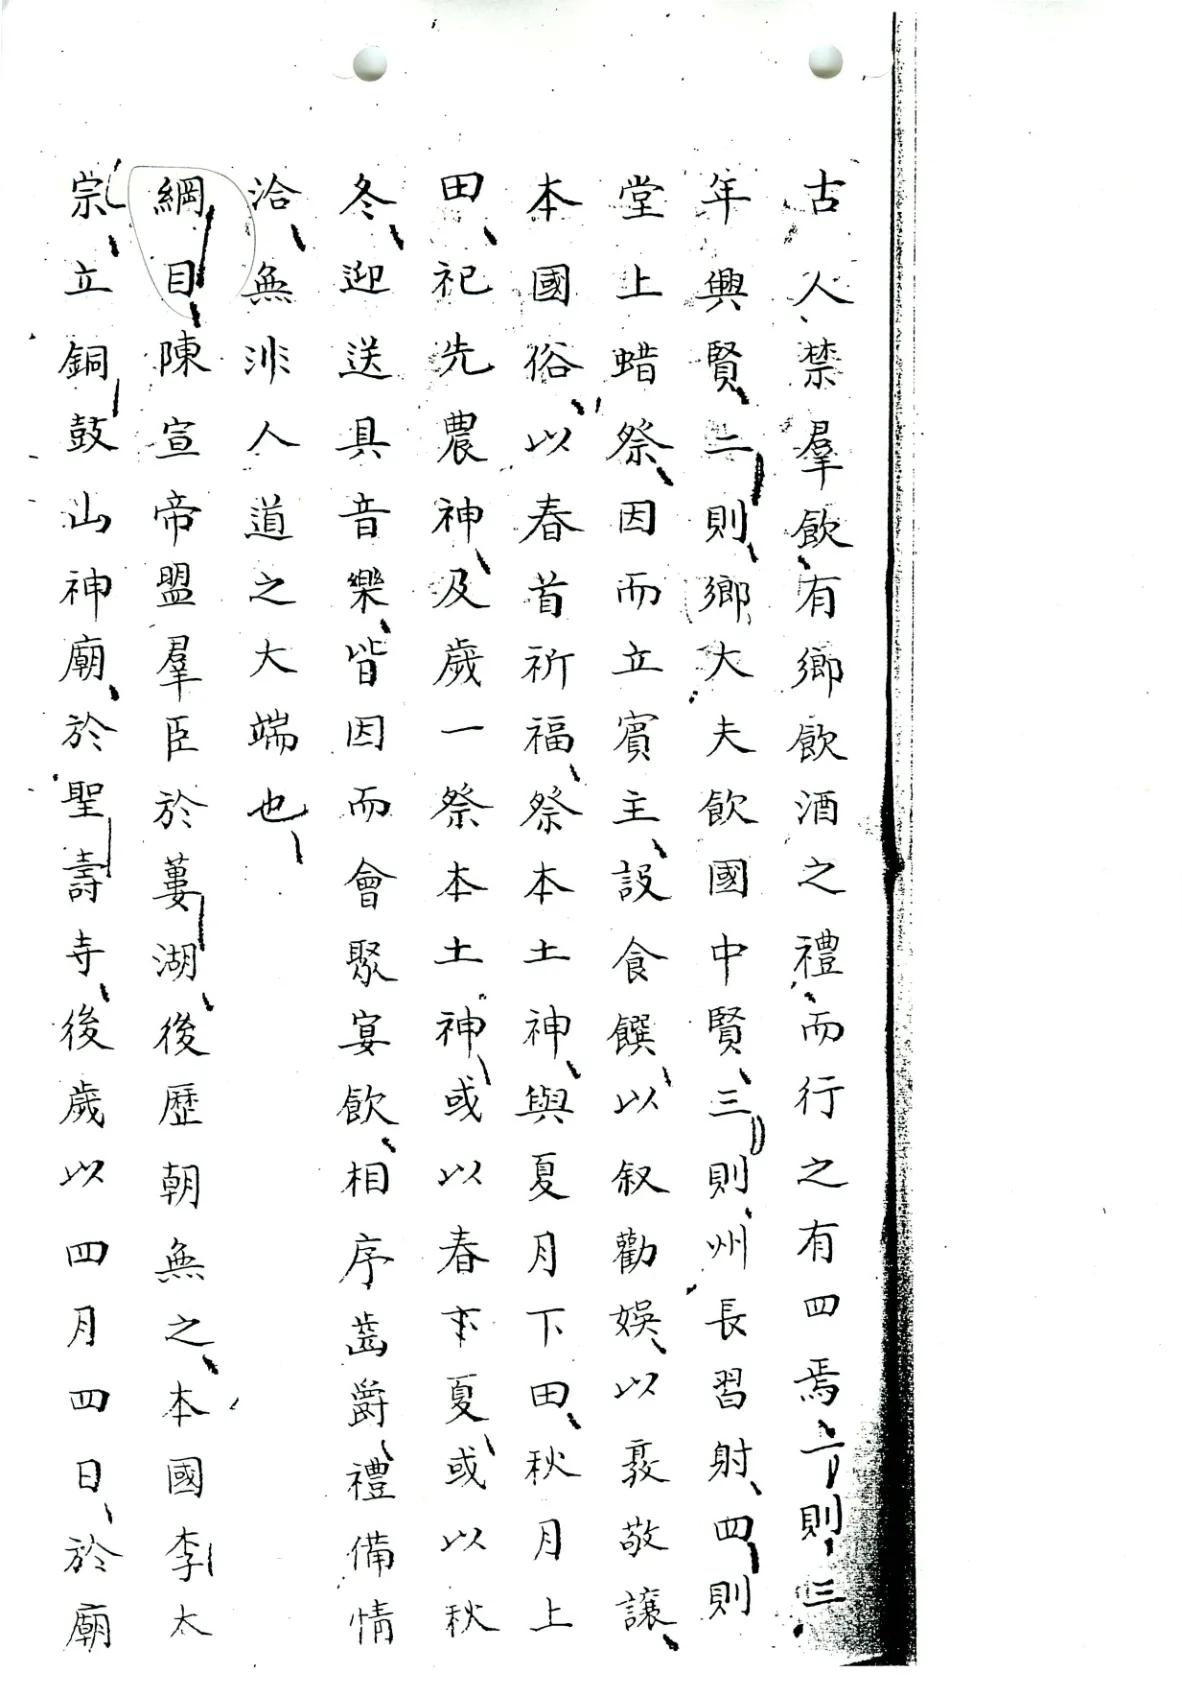 古人禁羣飲有鄉飲酒之禮而行之有四焉一則三
年興賢二則鄉大夫飲國中賢三則州長習射四則
堂上蜡祭因而立賓主設食饌以叙勸娛以敬讓
本國俗以春首祈福祭本土神與夏月下田秋月上
田祀先農神及歲一祭本土神或以春下夏或以秋
冬迎送具音樂皆因而會聚宴飲相序齒爵禮備情
洽無非人道之大端也
綱目陳宣帝盟羣臣於蔞湖後歷朝無之本國李太
宗立銅鼓山神廟於聖壽寺後歲以四月四日於廟